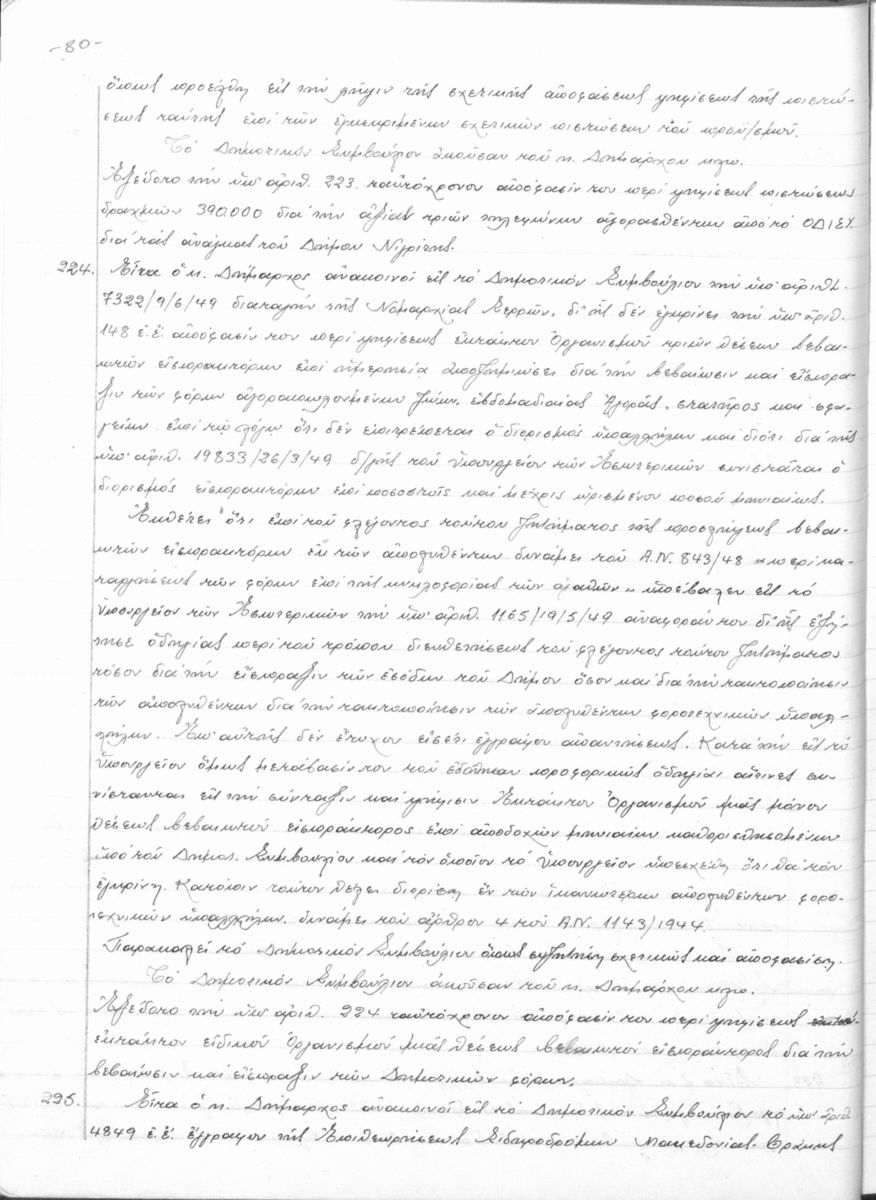 -80-
ὅπως προέλθῃ εἰς τήν λῆψιν τῆς σχετικῆς ἀποφάσεως ψηφίσεως τῆς πιστώ-
σεως ταύτης ἐπί τῶν ἐγκεκριμένων σχετικῶν πιστώσεων τοῦ προϋ/σμοῦ.
Τό Δημοτικόν Συμβούλιον ἀκοῦσαν τοῦ κ. Δημάρχου κλπ.
Ἐξέδοτο τήν ὑπ' ἀριθ. 223 ταυτόχρονον ἀπόφασίν του περί ψηφίσεως πιστώσεως
δραχμῶν 390.000 διά τήν ἀξίαν τριῶν τηλεφώνων ἀγορασθέντων ἀπό τό ΟΔΙΣΥ
διά τάς ἀνάγκας τοῦ Δήμου Νιγρίτης.
224. Εἶτα ὁ κ. Δήμαρχος ἀνακοινοῖ εἰς τό Δημοτικόν Συμβούλιον τήν ὑπ' ἀριθ.
7322/9/6/49 διαταγήν τῆς Νομαρχίας Σερρῶν, δι' ἧς δέν ἐγκρίνει τήν ὑπ' ἀριθ.
148 ἐ.ἔ. ἀπόφασίν του περί ψηφίσεως ἐκτάκτου Ὀργανισμοῦ τριῶν θέσεων βεβαι-
ωτῶν εἰσπρακτόρων ἐπί ἡμερησίᾳ ἀποζημιώσει διά τήν βεβαίωσιν καί εἴσπρα-
ξιν τῶν φόρων ἀγοραπωλουμένων ζώων, ἑβδομαδιαίας Ἀγορᾶς, στατῆρος καί σφα-
γείων ἐπί τῷ λόγῳ ὅτι δέν ἐπιτρέπεται ὁ διορισμός ὑπαλλήλων καί διότι διά τῆς
ὑπ' ἀριθ. 19833/26/3/49 δ/γῆς τοῦ Ὑπουργείου τῶν Ἐσωτερικῶν συνιστᾶται ὁ
διορισμός εἰσπρακτόρων ἐπί ποσοστοῖς καί μέχρις ὡρισμένου ποσοῦ μηνιαίως.
Ἐκθέτει ὅτι ἐπί τοῦ φλέγοντος τούτου ζητήματος τῆς προσλήψεως βεβαι-
ωτῶν εἰσπρακτόρων ἐκ τῶν ἀπολυθέντων δυνάμει τοῦ Α.Ν. 843/48 "περί κα-
ταργήσεως τῶν φόρων ἐπί τῆς κυκλοφορίας τῶν ἀγαθῶν" ὑπέβαλεν εἰς τό
Ὑπουργεῖον τῶν Ἐσωτερικῶν τήν ὑπ' ἀριθ. 1165/19/5/49 ἀναφοράν του δι' ἧς ἐζή-
τησε ὁδηγίας περί τοῦ τρόπου διευθετήσεως τοῦ φλέγοντος τούτου ζητήματος
τόσον διά τήν εἴσπραξιν τῶν ἐσόδων τοῦ Δήμου ὅσον καί διά τήν τακτοποίησιν
τῶν ἀπολυθέντων διά τήν τακτοποίησιν τῶν ἀπολυθέντων φοροτεχνικῶν ὑπαλ-
λήλων. Ἐπ' αὐτῆς δέν ἔτυχον εἰσέτι ἐγγράφου ἀπαντήσεως. Κατά τήν εἰς τό
Ὑπουργεῖον ὅμως μετάβασίν του τοῦ ἐδόθησαν προφορικῶς ὁδηγίαι αἵτινες συ-
νίστανται εἰς τήν σύνταξιν καί ψήφισιν Ἐκτάκτου Ὀργανισμοῦ μιᾶς μόνον
θέσεως βεβαιωτοῦ εἰσπράκτορος ἐπί ἀποδοχῶν μηνιαίων καθορισθησομένων
ὑπό τοῦ Δημοτ. Συμβουλίου καί τόν ὁποῖον τό Ὑπουργεῖον ὑπεσχέθη ὅτι θά τόν
ἐγκρίνῃ. Κατόπιν τούτου θέλει διορίσῃ ἐκ τῶν ἱκανωτέρων ἀπολυθέντων φορο-
τεχνικῶν ὑπαλλήλων δυνάμει τοῦ ἄρθρου 4 τοῦ Α.Ν. 1143/1944.
Παρακαλεῖ τό Δημοτικόν Συμβούλιον ὅπως συζητήσῃ σχετικῶς καί ἀποφασίσῃ.
Τό Δημοτικόν Συμβούλιον ἀκοῦσαν τοῦ κ. Δημάρχου κλπ.
Ἐξέδοτο τήν ὑπ' ἀριθ. 224 ταυτόχρονον ἀπόφασίν του περί ψηφίσεως
ἐκτάκτου εἰδικοῦ Ὀργανισμοῦ μιᾶς θέσεως βεβαιωτοῦ εἰσπράκτορος διά τήν
βεβαίωσιν καί εἴσπραξιν τῶν Δημοτικῶν φόρων.
295. Εἶτα ὁ κ. Δήμαρχος ἀνακοινοῖ εἰς τό Δημοτικόν Συμβούλιον τό ὑπ' ἀριθ.
4849 ἐ.ἔ. ἔγγραφον τῆς Ἐπιθεωρήσεως Σιδηροδρόμων Μακεδονίας-Θράκης